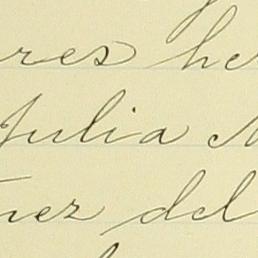 res he
Julia
nez del